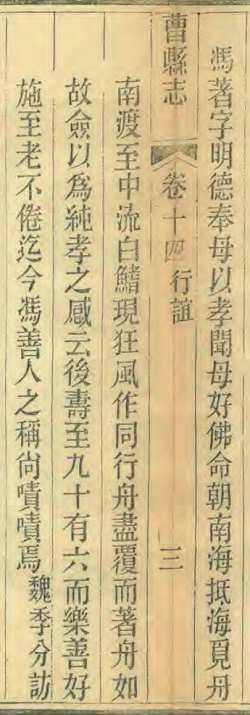 馮著字明德奉母以孝聞母好佛命朝南海抵海覓舟
曹縣志 卷十四 行誼 三
南渡至中流白鰭現狂風作同行舟盡覆而著舟如
故僉以為純孝之感云後壽至九十有六而樂善好
施至老不倦迄今馮善人之稱尙嘖嘖焉魏季分訪